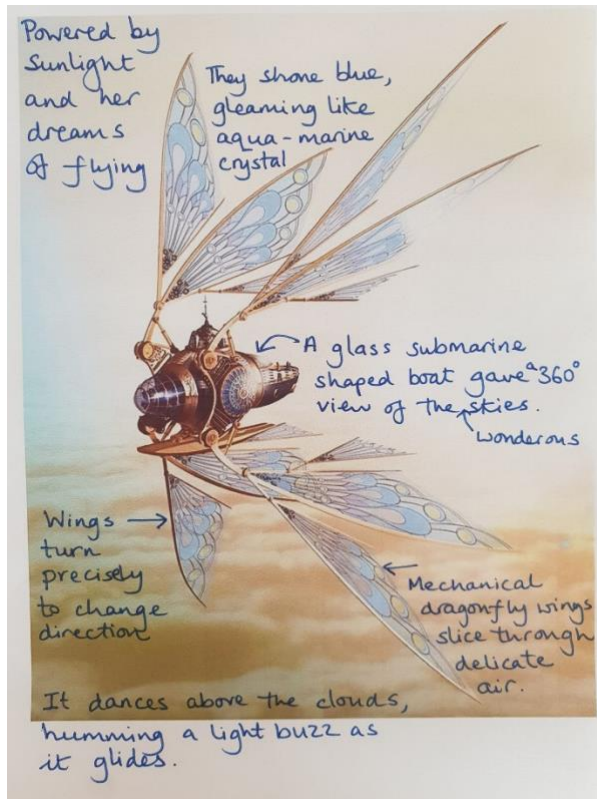 Powered by
Sunlight
and her
dreams
of flying
They shone blue,
gleaming like
aqua-marine
crystal
A glass submarine
shaped boat gave a 360°
view of the skies.
wonderous
Wings
turn
precisely
to change
direction
Mechanical
dragonfly wings
slice through
delicate
air.
It dances above the clouds,
humming a light buzz as
it glides.